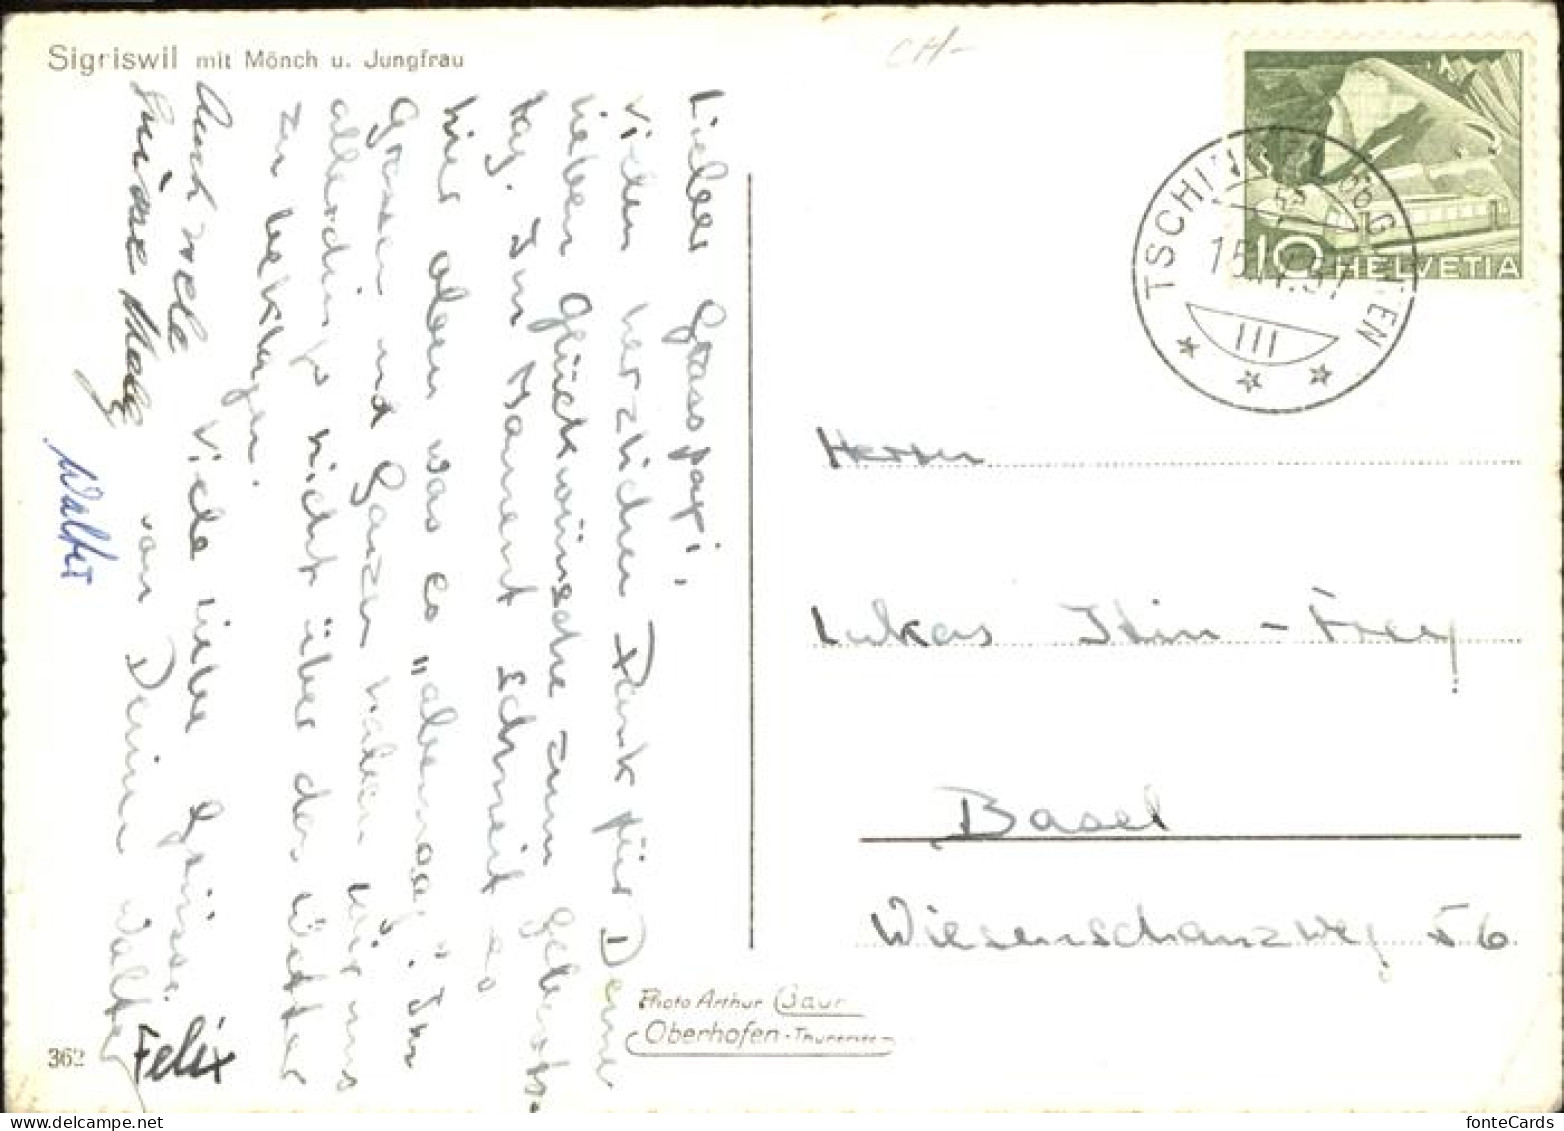 Sigriswil mit Mönch u. Jungfrau
CH-
Lieber Grosspapi,
Vielen herzlichen Dank für Deine
lieben Glückwünsche zum Geburts-
tag. Im Moment schneit es
hier oben was es „abemag". Im
Grossen und Ganzen haben wir uns
allerdings nicht über das Wetter
zu beklagen.
Auch viele liebe Grüsse
von Deinem Walter
Felix
Walter
HELVETIA
10
TSCHINGEL
III
Herrn
Lukas Stin-Frey
Basel
Wiesenschanzweg 56
Photo Arthur Baur
Oberhofen-Thunersee
362
fonteCards